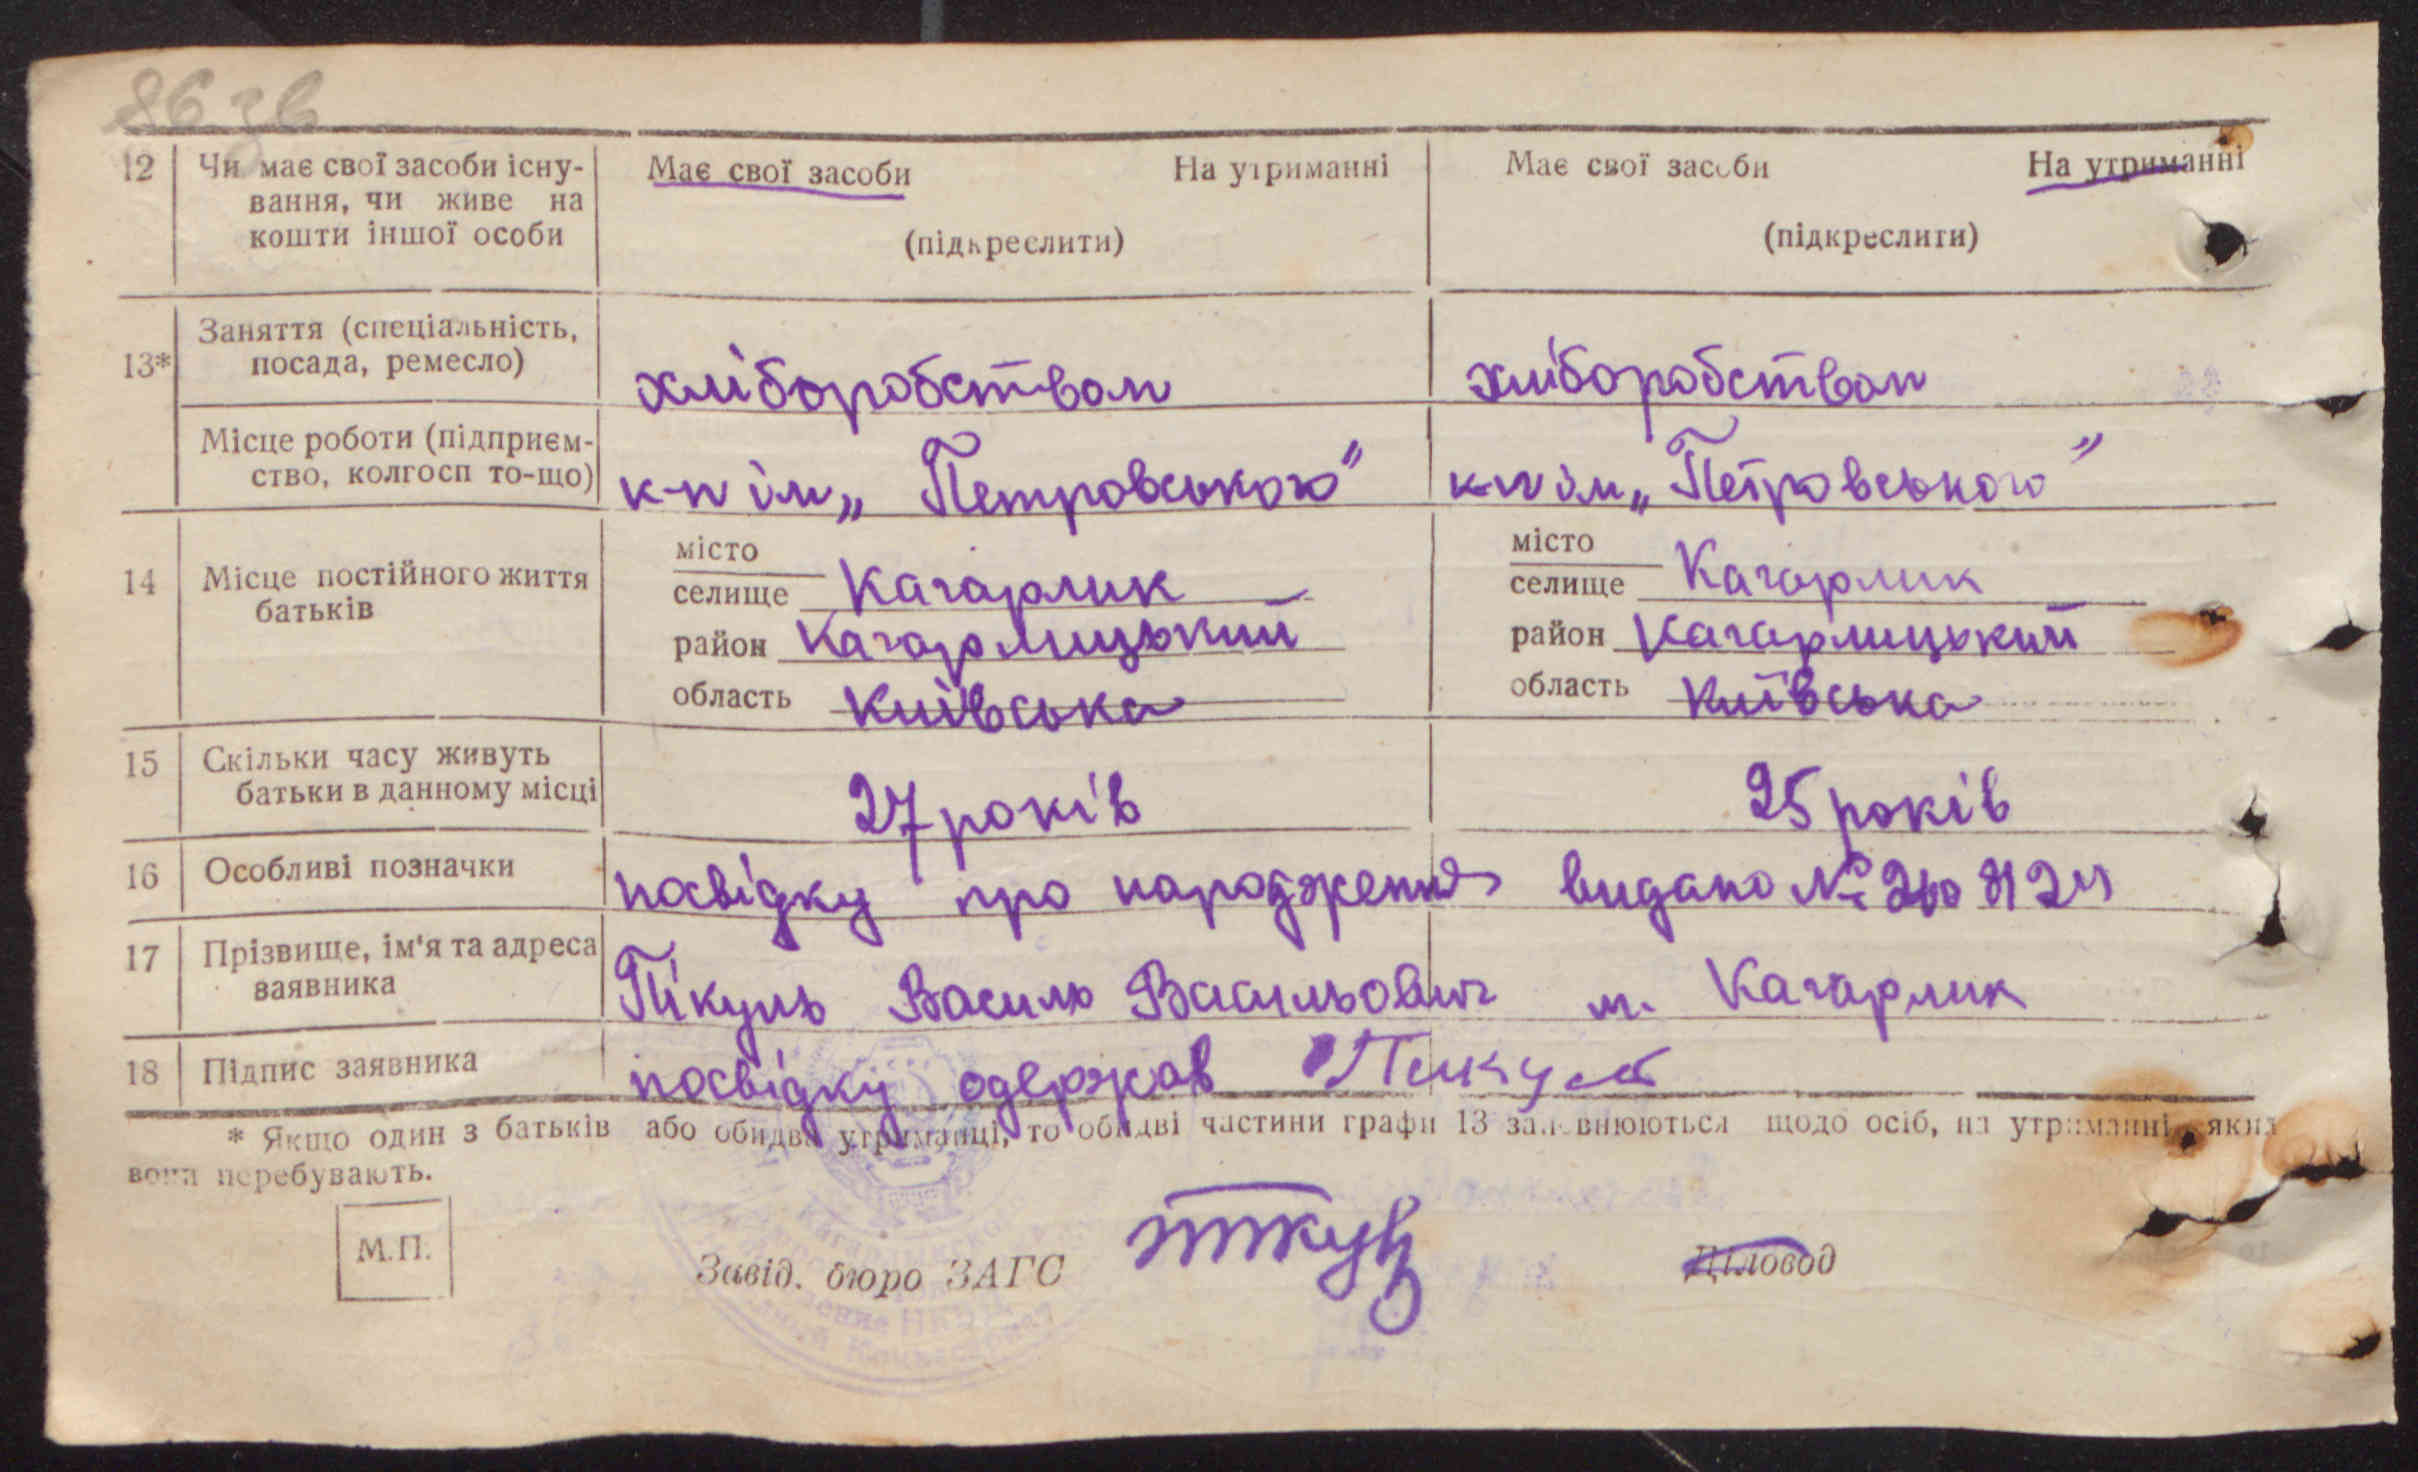 86 зв
12 Чи має свої засоби існу- Має свої засоби На утриманні Має свої засоби На утриманні
вання, чи живе на
кошти іншої особи (підкреслити) (підкреслити)
Заняття (спеціальність,
13* посада, ремесло) хліборобством хліборобством
Місце роботи (підприєм-
ство, колгосп то-що) к-п ім „Петровського" к-п ім „Петровського"
місто місто
14 Місце постійного життя селище Кагарлик селище Кагарлик
батьків район Кагарлицький район Кагарлицький
область Київська область Київська
15 Скільки часу живуть
батьки в данному місці 27 років 25 років
16 Особливі позначки посвідку про народження видано №
17 Прізвище, ім'я та адреса
заявника Пікуль Василь Васильович м. Кагарлик
18 Підпис заявника посвідку одержав Пикуль
* Якщо один з батьків або обидва утриманці, то обидві частини графи 13 заповнюються щодо осіб, на утриманні яких
вони перебувають.
М.П.
Завід. бюро ЗАГС Діловод